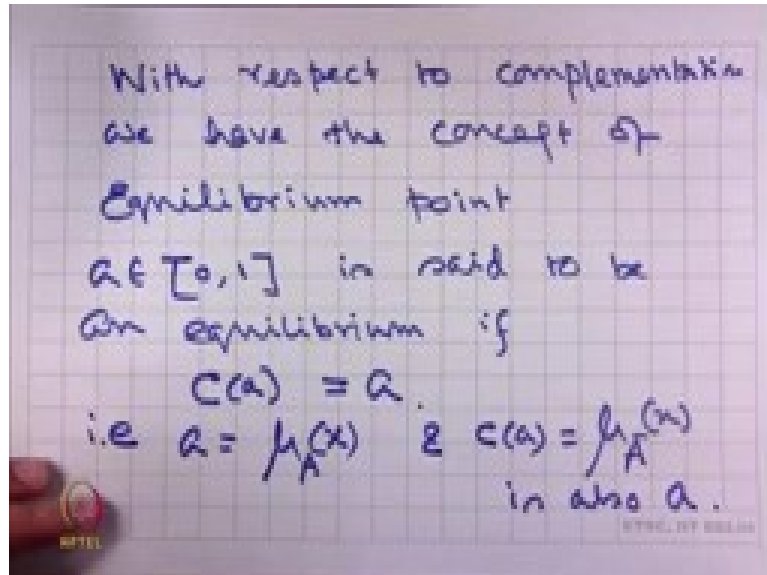 With respect to complementation
we have the concept of
Equilibrium point
a ∈ [0, 1] is said to be
an equilibrium if
C(a) = a.
i.e a = μ_A(x) & C(a) = μ_Ā(x)
is also a.
NPTEL
ETSC, IIT DELHI